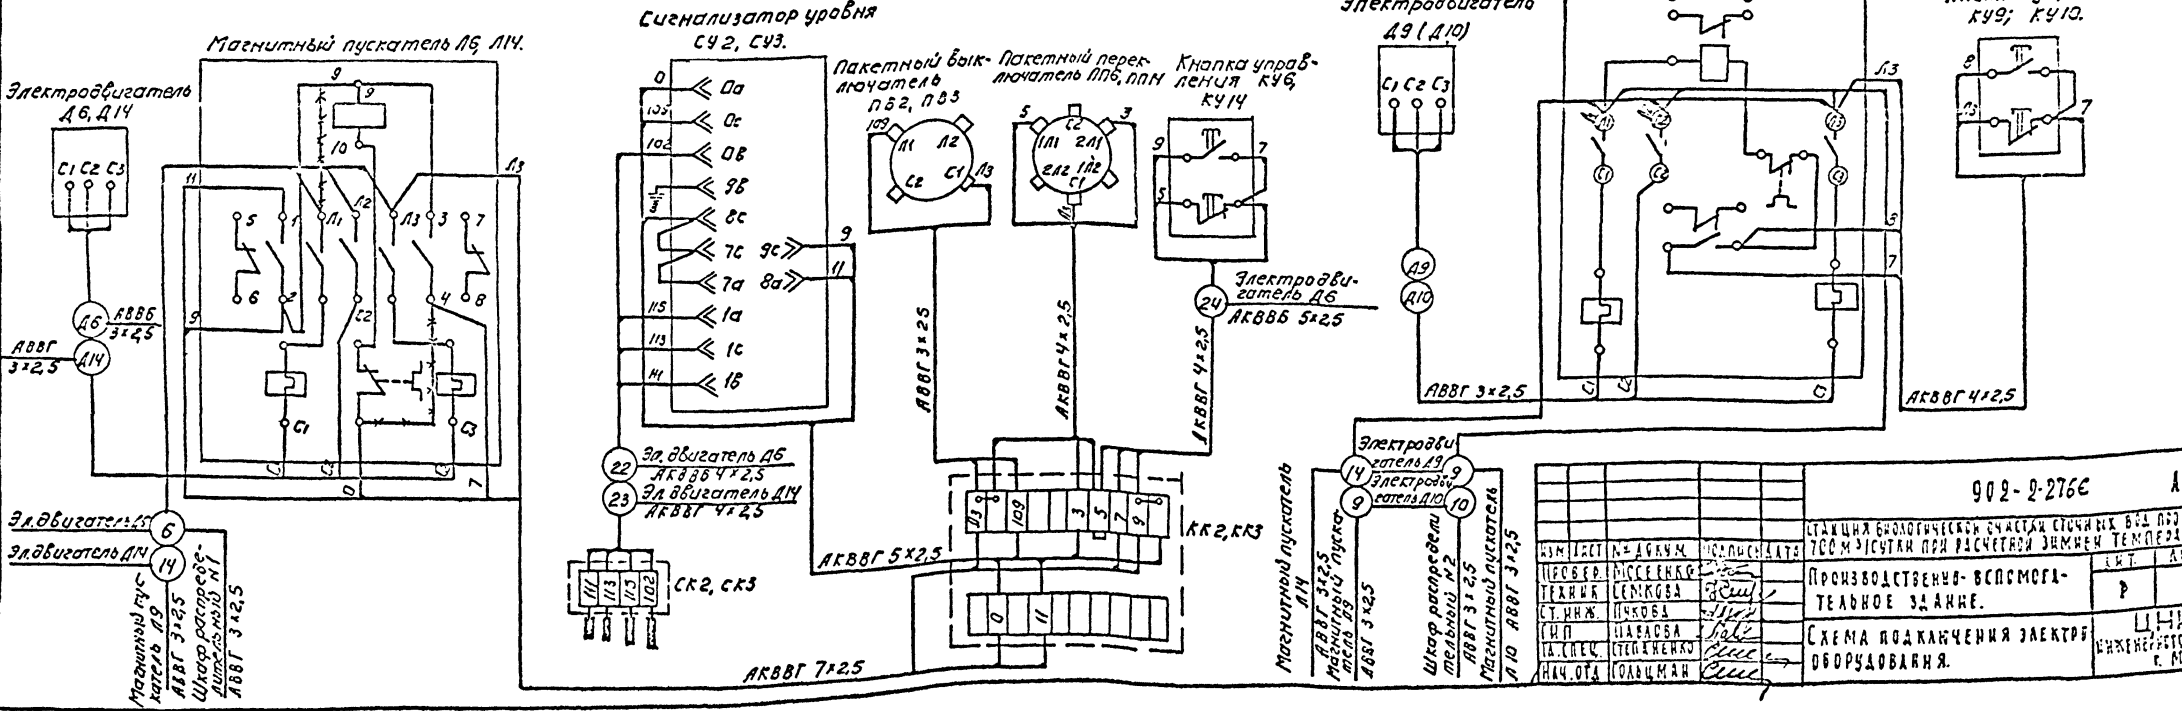 Магнитный пускатель Л6, Л14.
Электродвигатель
Д6, Д14
С1 С2 С3
9
9
10
11
Л3
5
1
Л1
Л2
Л3
3
7
6
2
С2
4
8
9
Д6
АВВБ
3×2,5
АВВГ
3×2,5
Д14
С1
С3
0
7
Эл.двигатель
6
Эл.двигатель Д14
14
Магнитный пус-
катель Л9
АВВГ 3×2,5
Шкаф распреде-
лительный №1
АВВГ 3×2,5
Сигнализатор уровня
СУ2, СУ3.
0
0а
0с
102
0в
9в
8с
7с
9с
9
7а
8а
11
115
1а
113
1с
1в
22
Эл. двигатель Д6
АКВВБ 4×2,5
23
Эл двигатель Д14
АКВВГ 4×2,5
111
113
115
102
СК2, СК3
Пакетный вык-
лючатель
ПВ2, ПВ3
109
Л1
Л2
С2
С1
Л3
АВВГ 3×2,5
Пакетный перек-
лючатель ПП6, ПП14
5
С2
3
1Л1
2Л1
2Л2
1Л2
С1
Л3
АКВВГ 4×2,5
Кнопка управ-
ления КУ6,
КУ14
9
7
5
24
Электродви-
гатель Д6
АКВВБ 5×2,5
АКВВГ 4×2,5
Л3
109
3
5
7
9
КК2, КК3
АКВВГ 5×2,5
0
11
АКВВГ 7×2,5
Электродвигатель
Д9 (Д10)
С1 С2 С3
Д9
Д10
АВВГ 3×2,5
Л3
С1
С2
С3
3
7
С1
С2
КУ9; КУ10.
8
7
АКВВГ 4×2,5
Электродви-
гатель Д9
14
9
Электродви-
гатель Д10
9
10
Магнитный пускатель
Л14
АВВГ 3×2,5
Магнитный пуска-
тель Л9
АВВГ 3×2,5
Шкаф распредели-
тельный №2
АВВГ 3×2,5
Магнитный пускатель
Л10 АВВГ 3×2,5
902-2-276с
А
СТАНЦИЯ БИОЛОГИЧЕСКОЙ ОЧИСТКИ СТОЧНЫХ ВОД
700 М³/СУТКИ ПРИ РАСЧЕТНОЙ ЗИМНЕЙ ТЕМПЕРА
ИЗМ ЛИСТ № ДОКУМ. ПОДПИСЬ ДАТА
ПРОВЕР. МОСЕЕНКО
ТЕХНИК
СТ.ИНЖ.
ГИП ПАВЛОВА
ГЛ.СПЕЦ. СТЕПАНЕНКО
НАЧ.ОТД ГОЛЬЦМАН
ПРОИЗВОДСТВЕННО-ВСПОМОГА-
ТЕЛЬНОЕ ЗДАНИЕ.
Р
СХЕМА ПОДКЛЮЧЕНИЯ ЭЛЕКТРО
ОБОРУДОВАНИЯ.